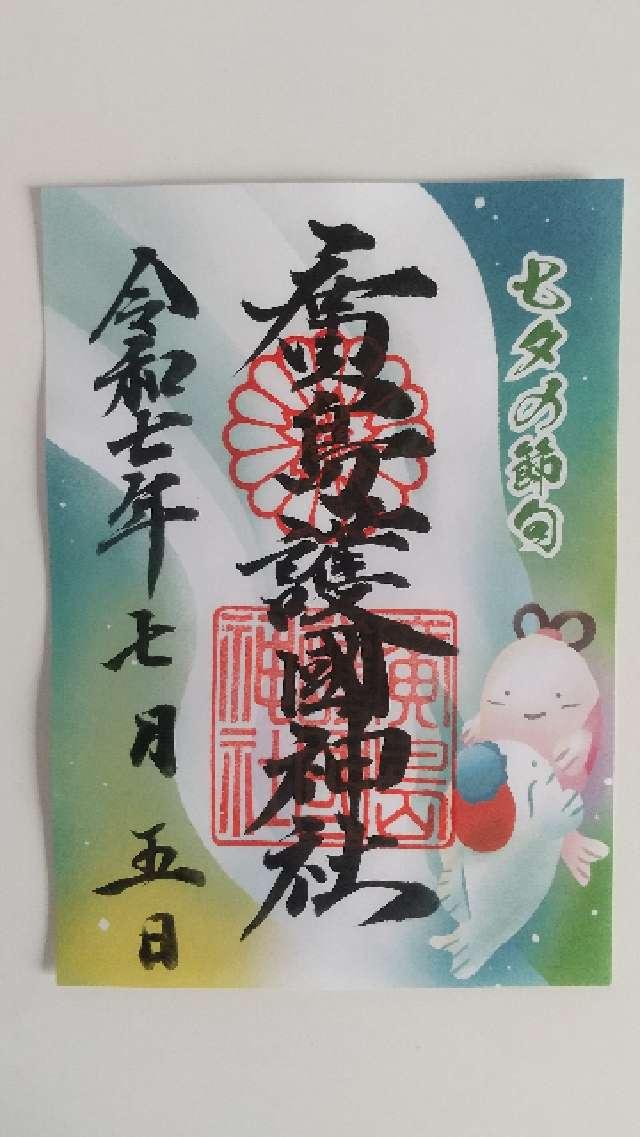 七夕の節句
廣島護國神社
廣島護國神社
令和七年七月五日